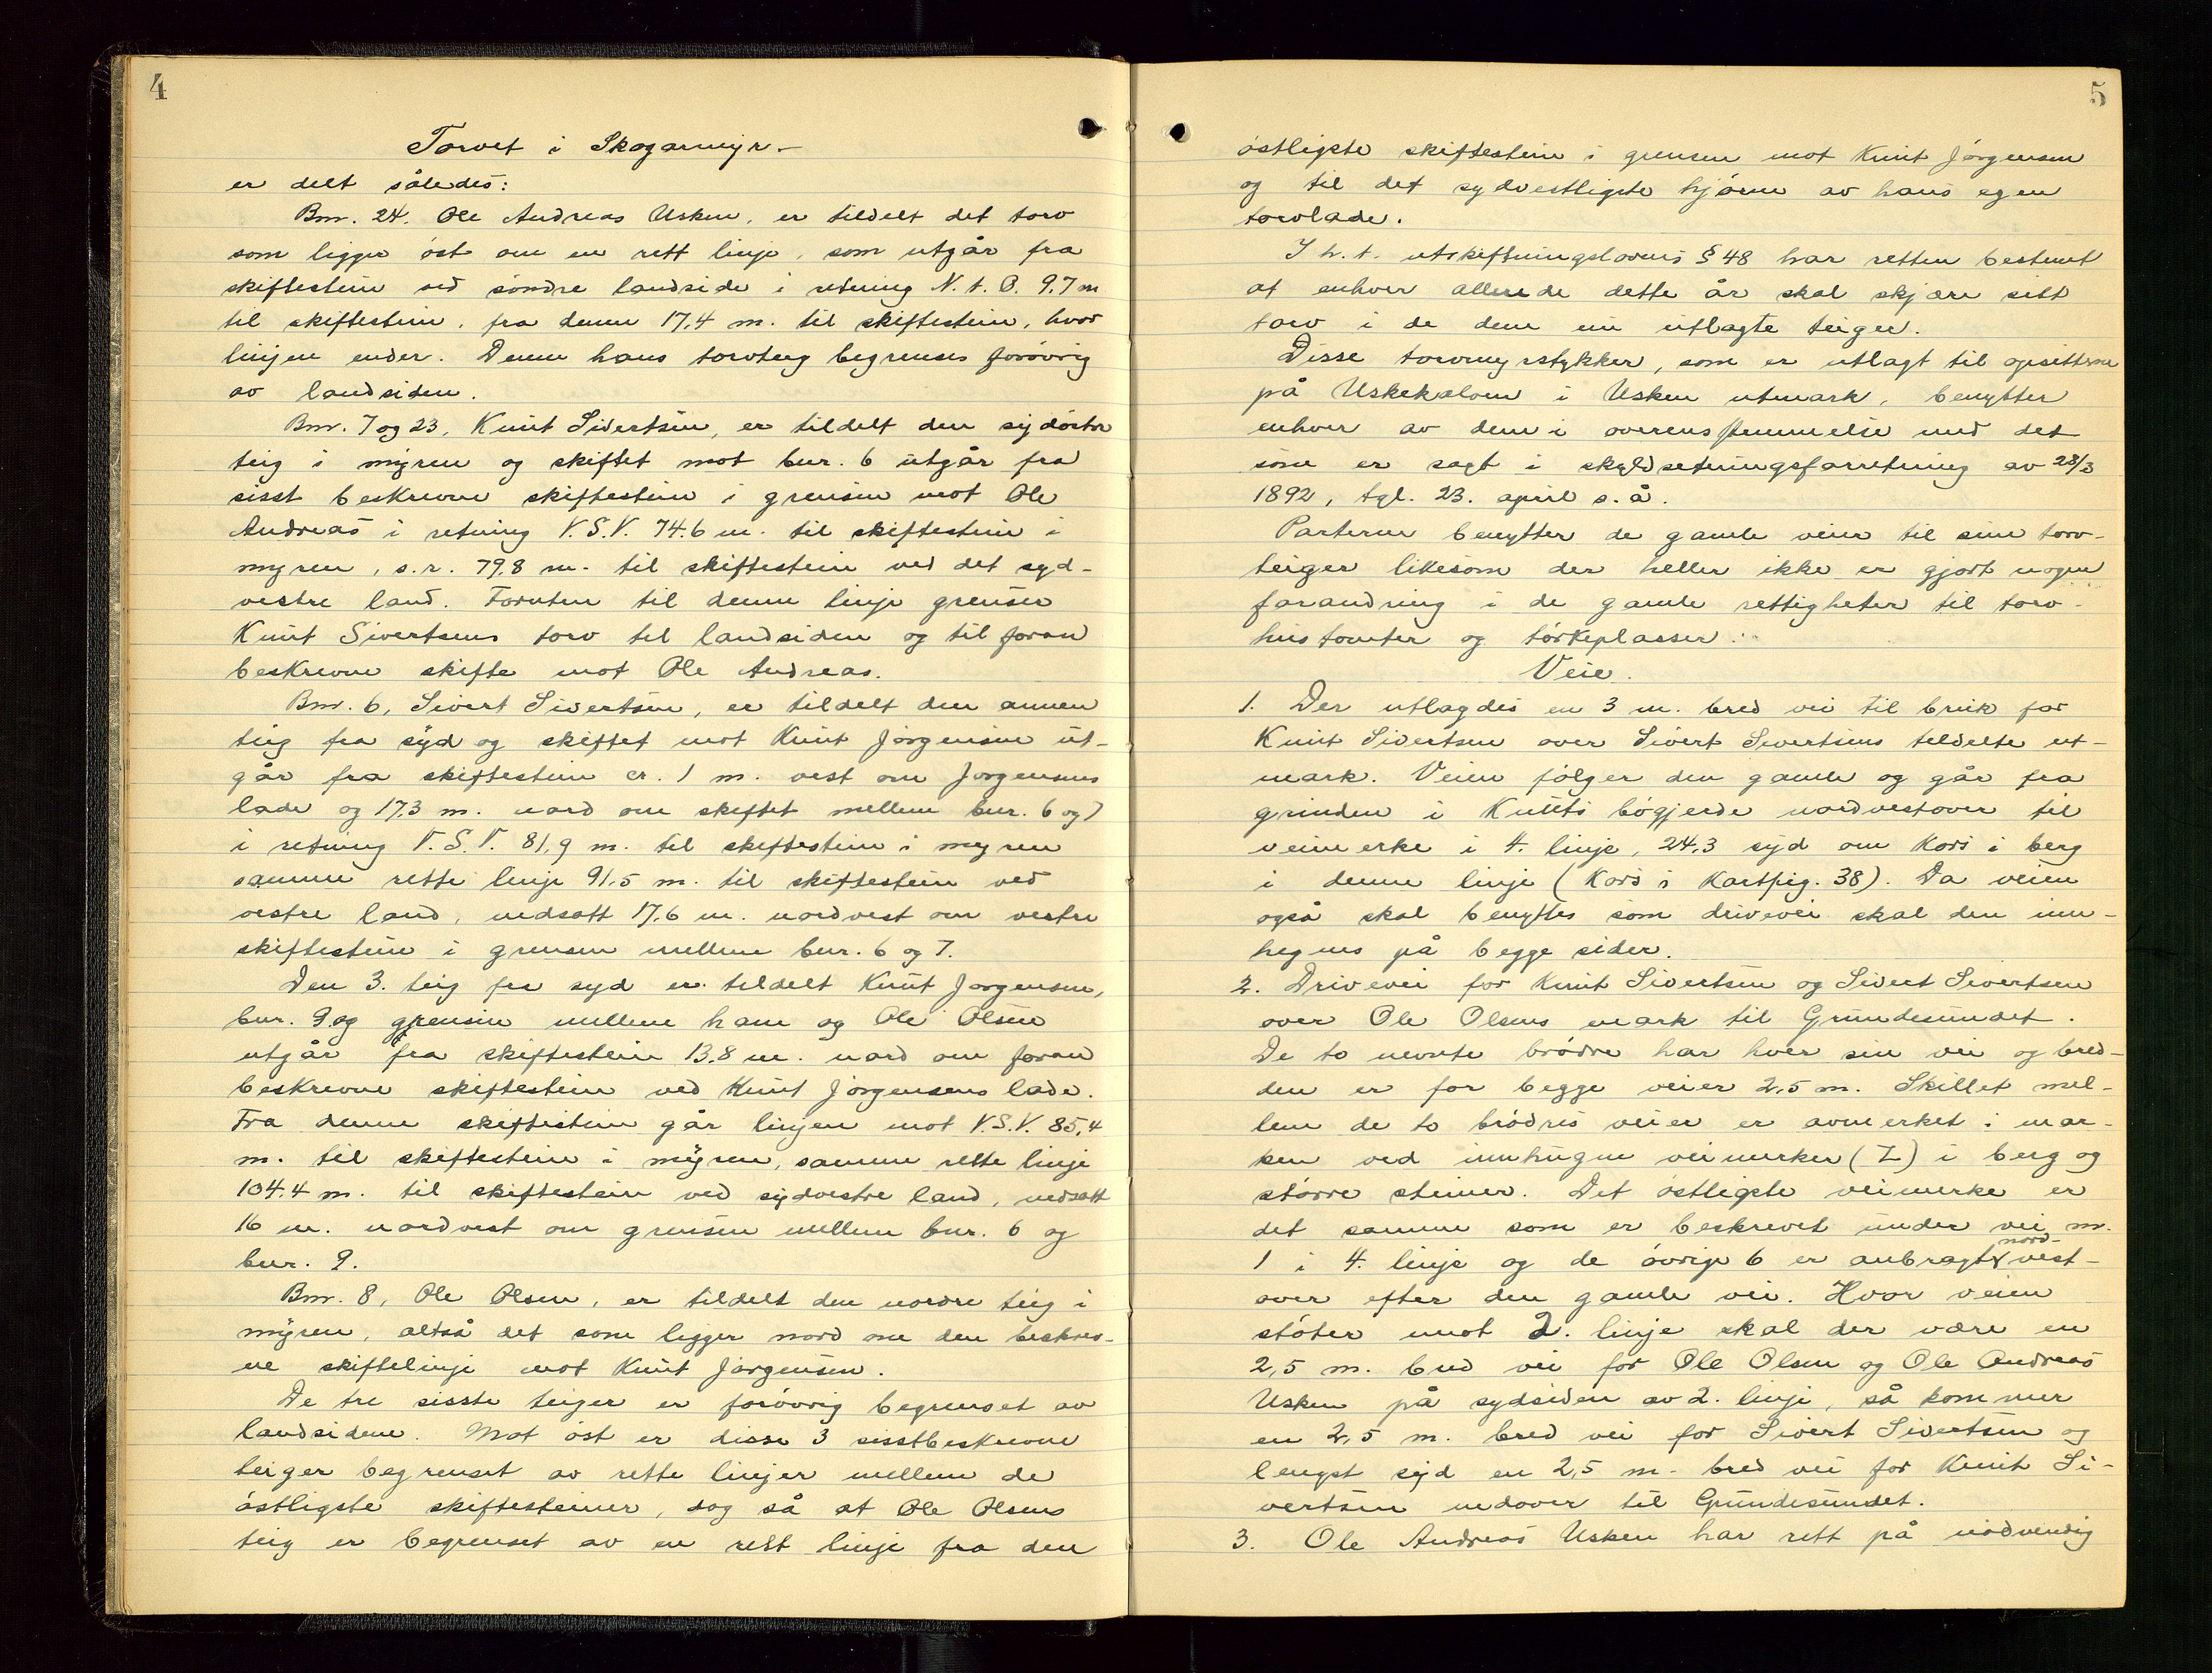 4
Torvet i Skogarmyr-
er delt således:
Bnr. 24. Ole Andreas Usken, er tildelt det torv
som ligger öst om en rett linje, som utgår fra
skiftestein ved söndre landside i retning N. t. Ö. 9,7 m
til skiftestein, fra denne 17,4 m. til skiftestein, hvor
linjen ender. Denne hans torvteig begrenses forövrig
av landsiden.
Bnr. 7 og 23, Knut Sivertsen, er tildelt den sydöstre
teig i myren og skiftet mot bnr. 6 utgår fra
sisst beskrevne skiftestein i grensen mot Ole
Andreas i retning V.S.V. 74.6 m. til skiftestein i
myren, s.r. 79,8 m. til skiftestein ved det syd-
vestre land. Foruten til denne linje grenser
Knut Sivertsens torv til landsiden og til foran
beskrevne skifte mot Ole Andreas.
Bnr. 6, Sivert Sivertsen, er tildelt den annen
teig fra syd og skiftet mot Knut Jörgensen ut-
går fra skiftestein cr. 1 m. vest om Jörgensens
lade og 17,3 m. nord om skiftet mellem bnr. 6 og 7
i retning V.S.V. 81,9 m. til skiftestein i myren
samme rette linje 91,5 m. til skiftestein ved
vestre land, nedsatt 17,6 m. nordvest om vestre
skiftestein i grensen mellem bnr. 6 og 7.
Den 3. teig fra syd er tildelt Knut Jörgensen,
bnr. 9 og grensen mellem ham og Ole Olsen
utgår fra skiftestein 13,8 m. nord om foran
beskrevne skiftestein ved Knut Jörgensens lade.
Fra denne skiftestein går linjen mot V.S.V. 85,4
m. til skiftestein i myren, samme rette linje
104,4 m. til skiftestein ved sydvestre land, nedsatt
16 m. nordvest om grensen mellem bnr. 6 og
bnr. 9.
Bnr. 8, Ole Olsen, er tildelt den nordre teig i
myren, altså det som ligger nord om den beskrev-
ne skiftelinje mot Knut Jörgensen.
De tre sisste teiger er forövrig begrenset av
landsidene. Mot öst er disse 3 sisstbeskrevne
teiger begrenset av rette linjer mellem de
östligste skiftesteiner, dog så at Ole Olsens
teig er begrenset av en rett linje fra den
5
östligste skiftestein i grensen mot Knut Jörgensen
og til det sydvestligste hjörne av hans egen
torvlade.
I h. t. utskiftningslovens § 48 har retten bestemt
at enhver allerede dette år skal skjære sitt
torv i de dem nu utlagte teiger.
Disse torvmyrstykker, som er utlagt til opsitterne
på Uskekalven i Usken utmark, benytter
enhver av dem i overensstemmelse med det
som er sagt i skyldsetningsforretning av 28/3
1892, tgl. 23. april s. å.
Parterne benytter de gamle veier til sine torv-
teiger likesom der heller ikke er gjort nogen
forandring i de gamle rettigheter til torv-
hustomter og törkeplasser.
Veie.
1. Der utlagdes en 3 m. bred vei til bruk for
Knut Sivertsen over Sivert Sivertsens tildelte ut-
mark. Veien fölger den gamle og går fra
grinden i Knuts bögjerde nordvestover til
veimerke i 4. linje, 24,3 syd om kors i berg
i denne linje (kors i kartfig. 38). Da veien
også skal benyttes som drivevei skal den inn-
hegnes på begge sider.
2. Drivevei for Knut Sivertsen og Sivert Sivertsen
over Ole Olsens mark til Grundesundet.
De to nevnte brödre har hver sin vei og bred-
den er for begge veier 2,5 m. Skillet mel-
lem de to brödres veier er avmerket i mar-
ken ved innhugne veimerker (I) i berg og
större steiner. Det östligste veimerke er
det samme som er beskrevet under vei nr.
1 i 4. linje og de övrige 6 er anbragt nord-vest-
over efter den gamle vei. Hvor veien
stöter mot 2. linje skal der være en
2,5 m. bred vei for Ole Olsen og Ole Andreas
Usken på sydsiden av 2. linje, så kommer
en 2,5 m. bred vei for Sivert Sivertsen og
lengst syd en 2,5 m. bred vei for Knut Si-
vertsen nedover til Grundesundet.
3. Ole Andreas Usken har rett på nödvendig